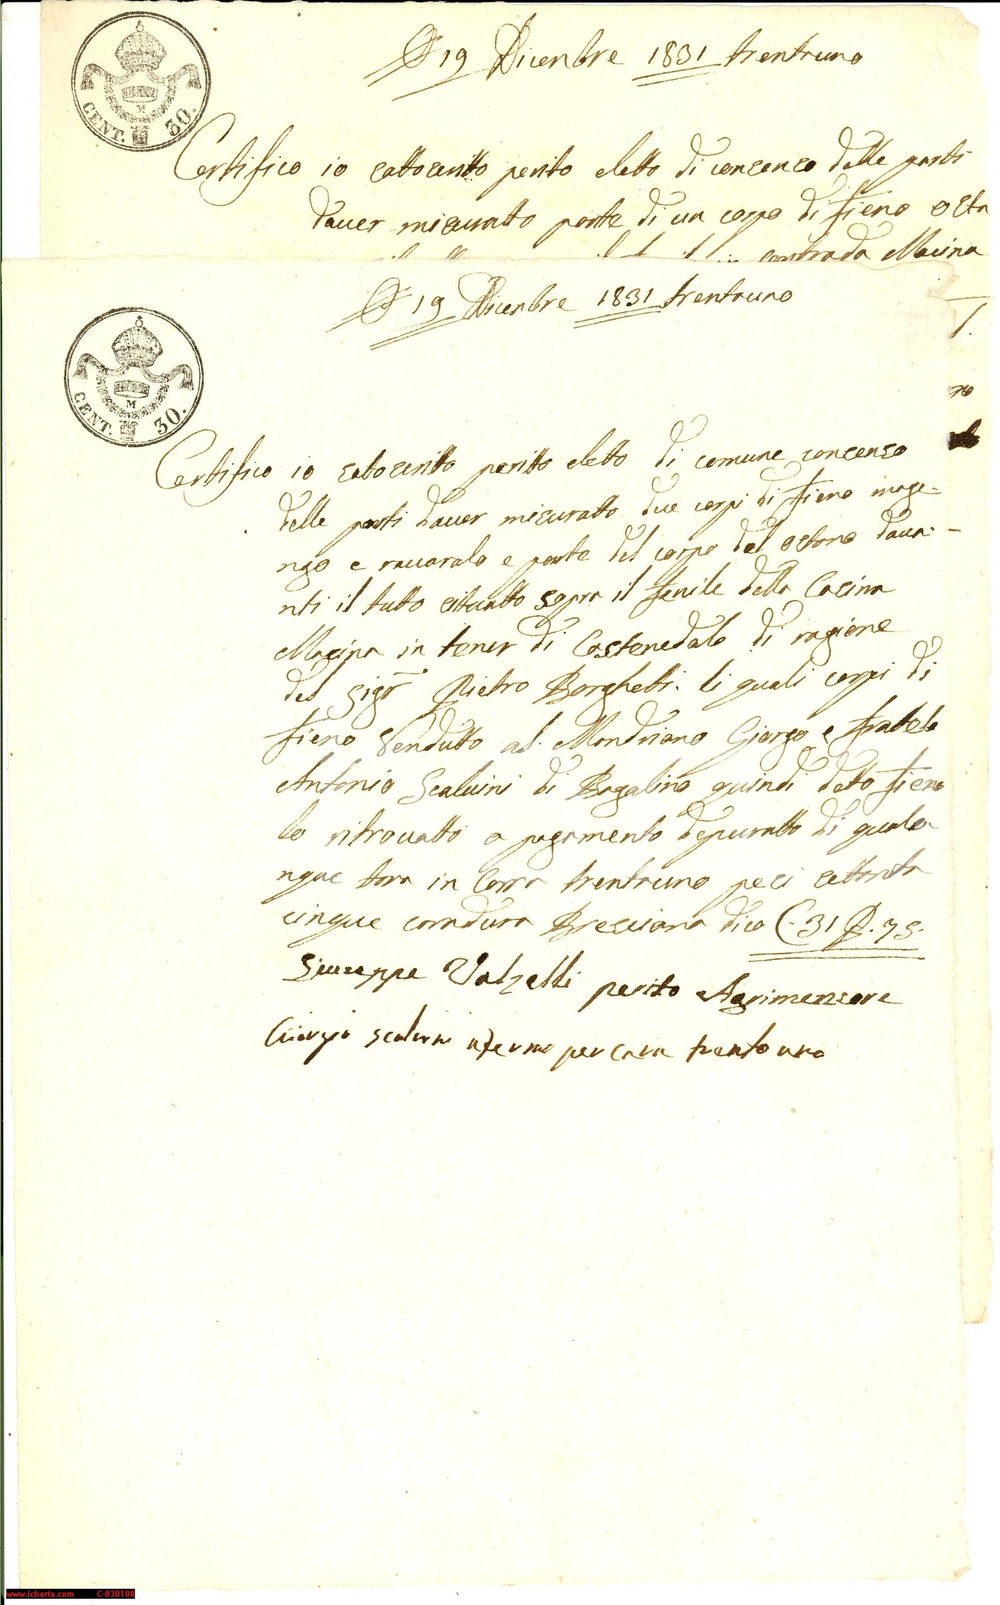 CENT. 30.
M
A 19 Dicenbre 1831 trentauno
Certifico io sottoscritto perito eletto di concenco delle parti
d'aver misuratto parte di un corpo di fieno osta
contrada Macina
CENT. 30.
M
A 19 Dicenbre 1831 trentauno
Certifico io sotoscritto peritto eletto di comune concenso
delle parti d'aver misuratto due corpi di fieno mage=
ngo e e parte del corpo del ostano dava=
nti il tutto situatto sopra il fenile della Casina
Macina in tener di Castenedolo di ragione
del Sigr. Pietro Borghetti. li quali corpi di
fieno Vendutto al Mandriano Giorgo e fratelo
Antonio Scalvini di Bagalino quindi detto fieno
lo ritrovatto a pagamento depuratto di quala
nque tara in Carra trentauno pesi settanta
cinque caradura Bresciana dico C. 31 P. 75.
Giuseppe Valzelli perito Agrimensore
Giorgio Scalvini afermo per cara trento uno
www.icharta.com C-030108